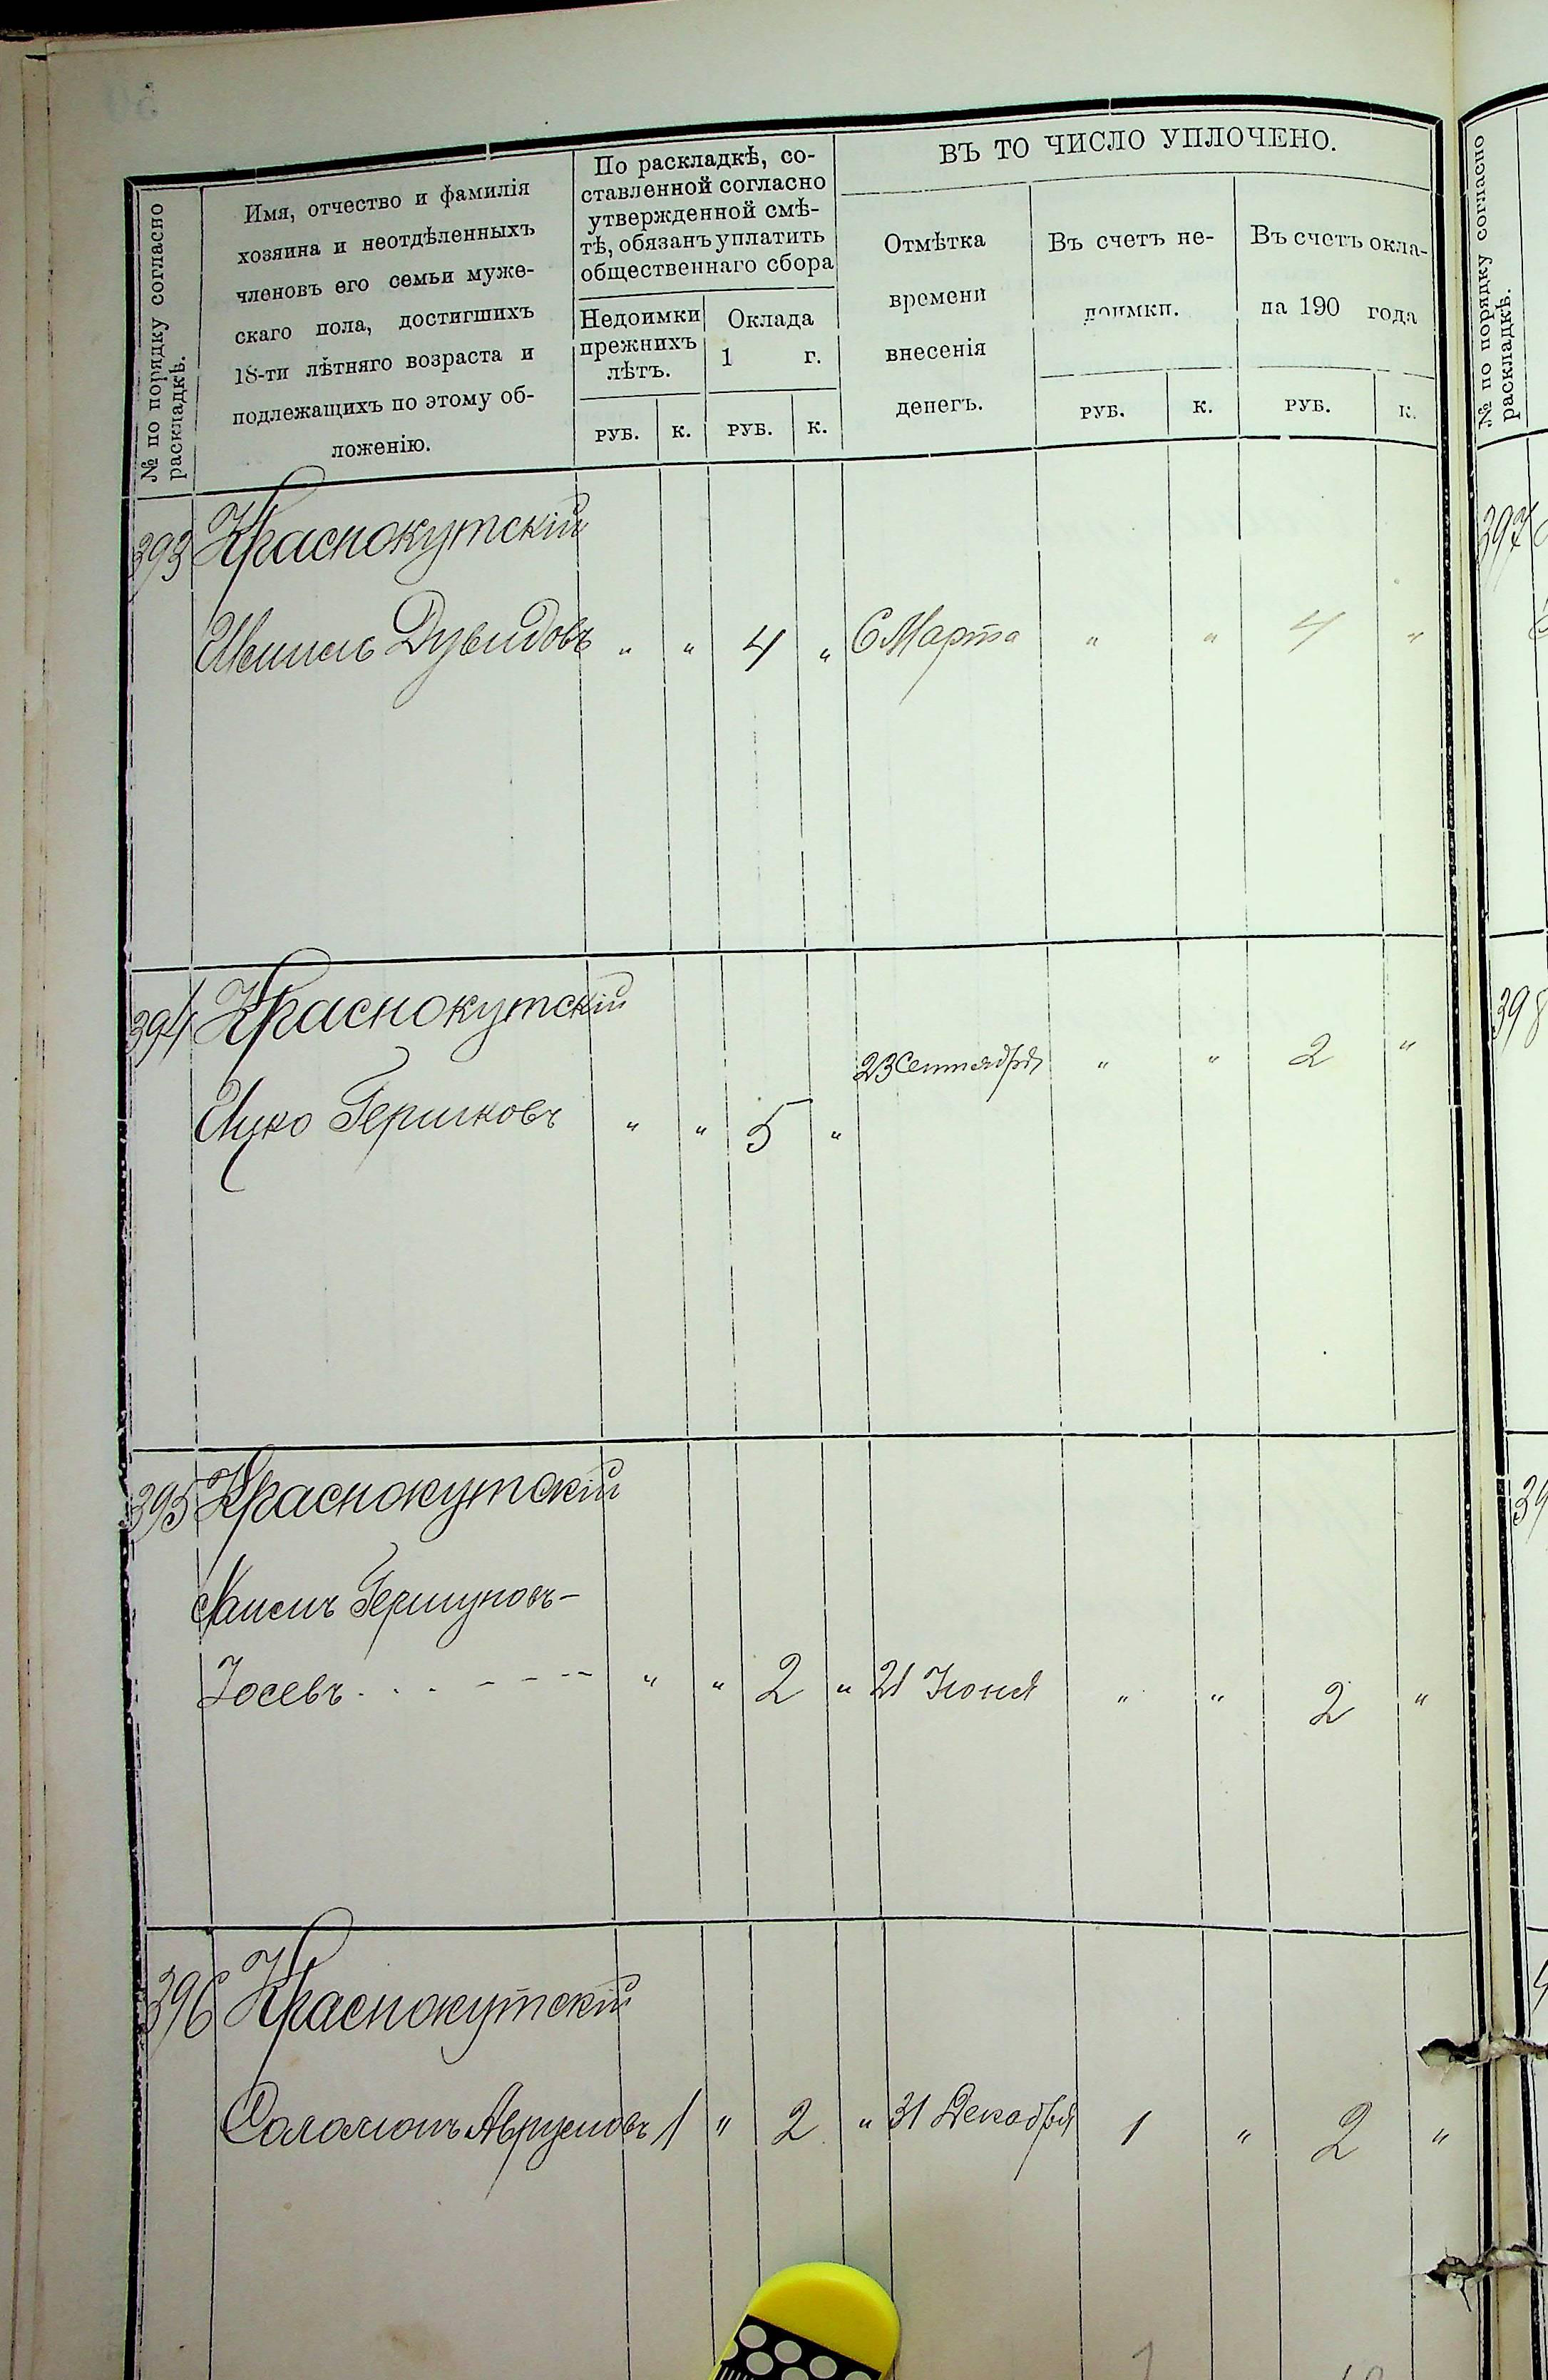 № по порядку согласно
раскладкѣ.
Имя, отчество и фамилія
хозяина и неотдѣленныхъ
членовъ его семьи муже-
скаго пола, достигшихъ
18-ти лѣтняго возраста и
подлежащихъ по этому об-
ложенію.
По раскладкѣ, со-
ставленной согласно
утвержденной смѣ-
тѣ, обязанъ уплатить
общественнаго сбора
Недоимки
прежнихъ
лѣтъ.
РУБ. К.
Оклада
1 г.
РУБ. К.
ВЪ ТО ЧИСЛО УПЛОЧЕНО.
Отмѣтка
времени
внесенія
денегъ.
Въ счетъ не-
доимки.
РУБ. К.
Въ счетъ окла-
на 190 года
РУБ. К.
393 Краснокутскій
Дувидовъ " " 4 " 6 Марта " " 4 "
394 Краснокутскій
23 Сентября " " 2 "
Ицко Гершковъ " " 5 "
395 Краснокутскій
Гершуновъ-
Іосевъ " " 2 " 21 Іюня " " 2 "
396 Краснокутскій
Соломонъ Аврумовъ 1 " 2 " 31 Декабря 1 " 2 "
№ по порядку согласно
раскладкѣ.
397
398